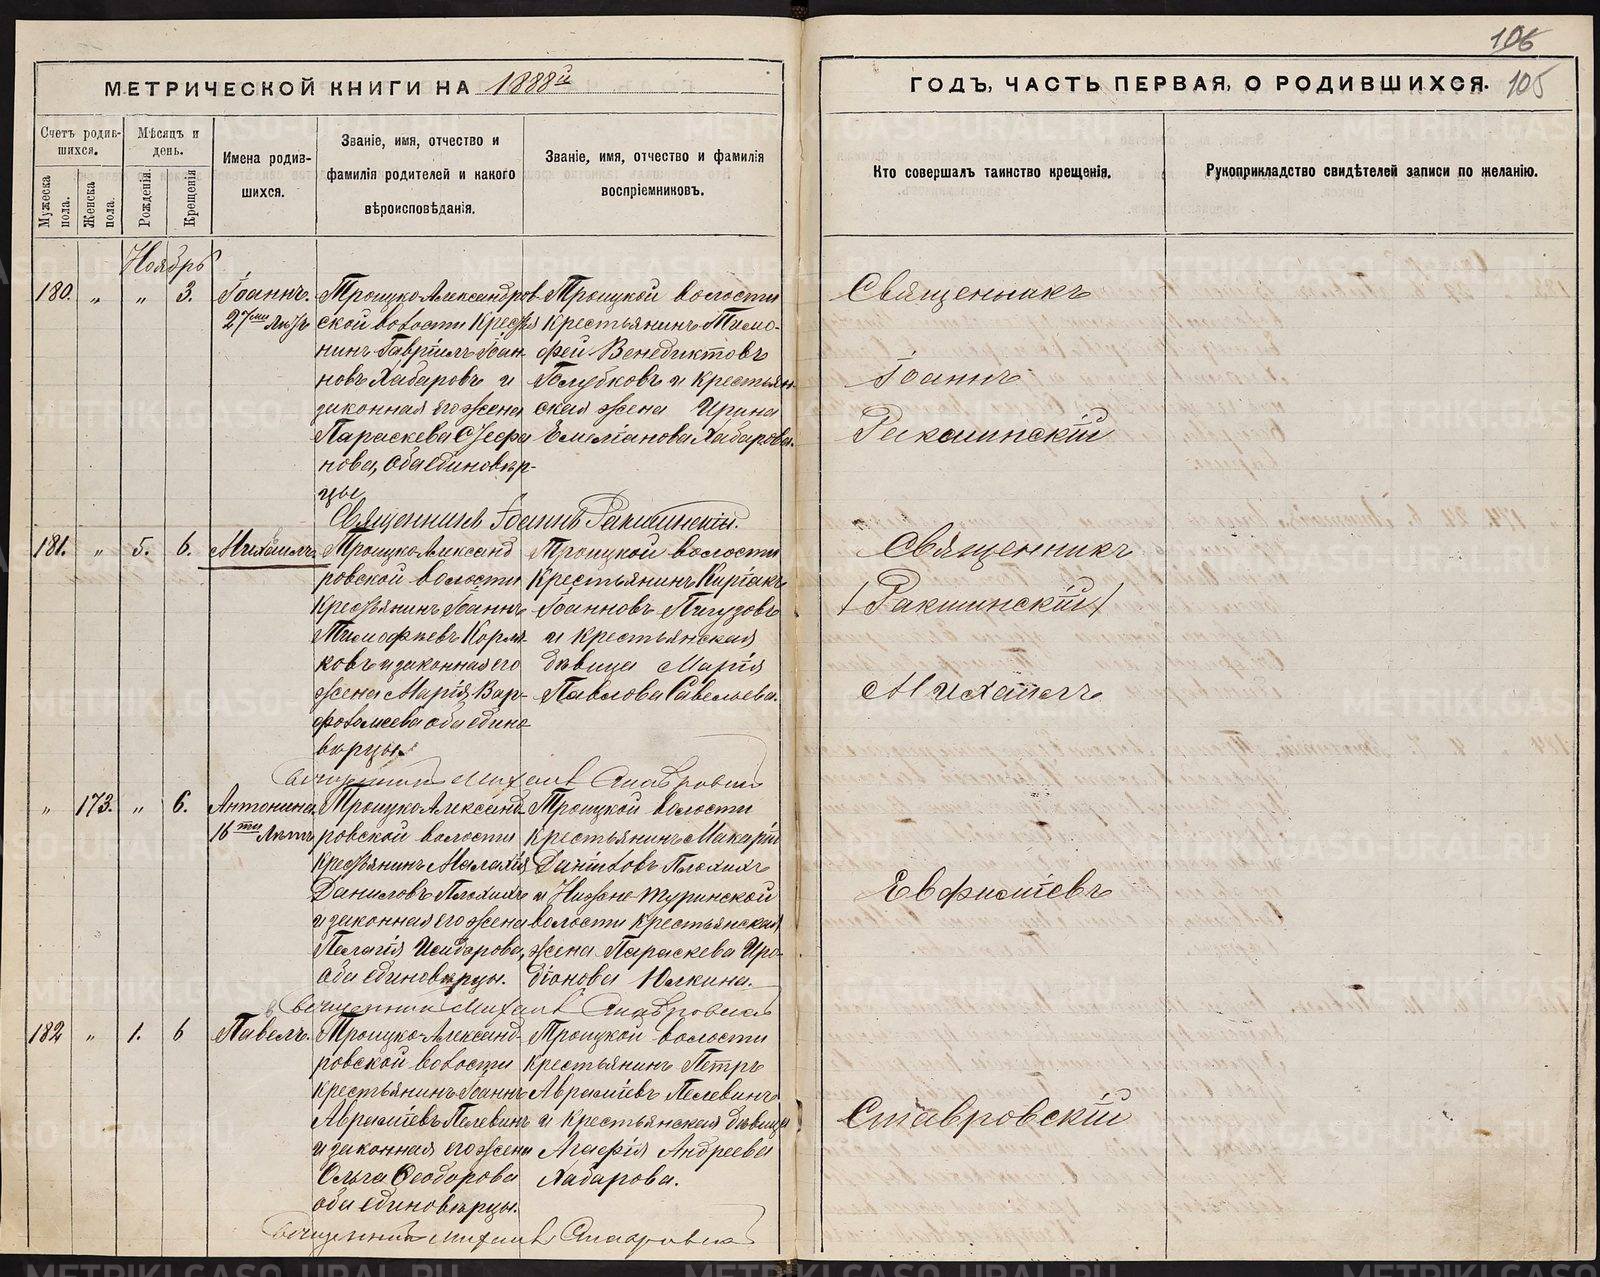 106
МЕТРИЧЕСКОЙ КНИГИ НА 1888й
ГОДЪ, ЧАСТЬ ПЕРВАЯ, О РОДИВШИХСЯ. 105
Счетъ родив-
шихся.
Мужеска пола.
Женска пола.
Мѣсяцъ и день.
Рожденія.
Крещенія
Имена родив-
шихся.
Званіе, имя, отчество и
фамилія родителей и какого
вѣроисповѣданія.
Званіе, имя, отчество и фамилія
воспріемниковъ.
Кто совершалъ таинство крещенія.
Рукоприкладство свидѣтелей записи по желанію.
Ноябрь
180. „ „ 3.
Іоаннъ.
27ми лѣтъ
Троицко-Александров
ской волости Крестья
нинъ Гавріилъ Іоан-
новъ Хабаровъ и
законная его жена
Параскева
нова, оба единовѣр-
цы
Троицкой волости
Крестьянинъ Тимо-
фей Венедиктовъ
Голубковъ и крестьян-
ская жена Ирина
Емеліанова Хабарова.
Священникъ Іоаннъ Ракшинскій.
Священникъ
Іоаннъ
Ракшинскій
181. „ 5. 6.
Михаилъ.
Троицко-Александ
ровской волости
Крестьянинъ Іоаннъ
Тимофѣевъ Корма-
ковъ и законная его
жена Марія Вар-
фоломеева оба едино
вѣрцы.
Троицкой волости
Крестьянинъ Киріакъ
Іоанновъ Пигузовъ
и крестьянская
дѣвица Марія
Павлова Савельева.
Священникъ Михаилъ Ставровскій
Священникъ
(Ракшинскій)
Михаилъ
„ 173. „ 6.
Антонина.
16ти лѣтъ
Троицко-Александ-
ровской волости
крестьянинъ Малахія
Даниловъ Плохихъ
и законная его жена
Пелагія Исидорова,
оба единовѣрцы.
Троицкой волости
крестьянинъ Макарій
Даніиловъ Плохихъ
и Нижне-Туринской
волости крестьянская
жена Параскева Иро-
діонова Юлкина.
Священникъ Михаилъ Ставровскій
Евфиміевъ
182 „ 1. 6
Павелъ.
Троицко-Александ-
ровской волости
крестьянинъ Іоаннъ
Авраміевъ Пелевинъ
и законная его жена
Ольга Ѳеодорова
оба единовѣрцы.
Троицкой волости
крестьянинъ Петръ
Авраміевъ Пелевинъ
и крестьянская дѣвица
Агафія Андреева
Хабарова.
Священникъ Михаилъ Ставровскій
Ставровскій
METRIKI.GASO-URAL.RU